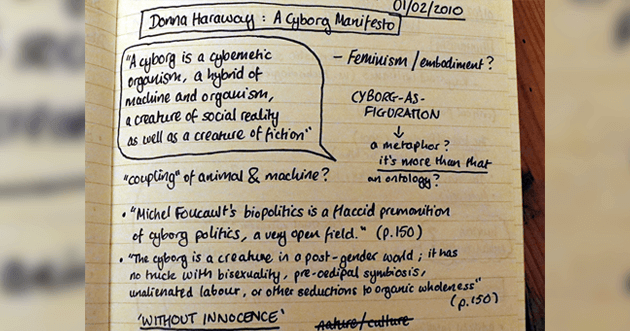 01/02/2010
Donna Haraway : A Cyborg Manifesto
"A cyborg is a cybernetic
organism, a hybrid of
machine and organism,
a creature of social reality
as well as a creature of fiction"
- Feminism / embodiment?
CYBORG-AS-
FIGURATION
↓
a metaphor?
it's more than that
an ontology?
"coupling" of animal & machine?
• "Michel Foucault's biopolitics is a flaccid premonition
of cyborg politics, a very open field." (p.150)
• "The cyborg is a creature in a post-gender world; it has
no truck with bisexuality, pre-oedipal symbiosis,
unalienated labour, or other seductions to organic wholeness"
(p.150)
'WITHOUT INNOCENCE'
nature/culture